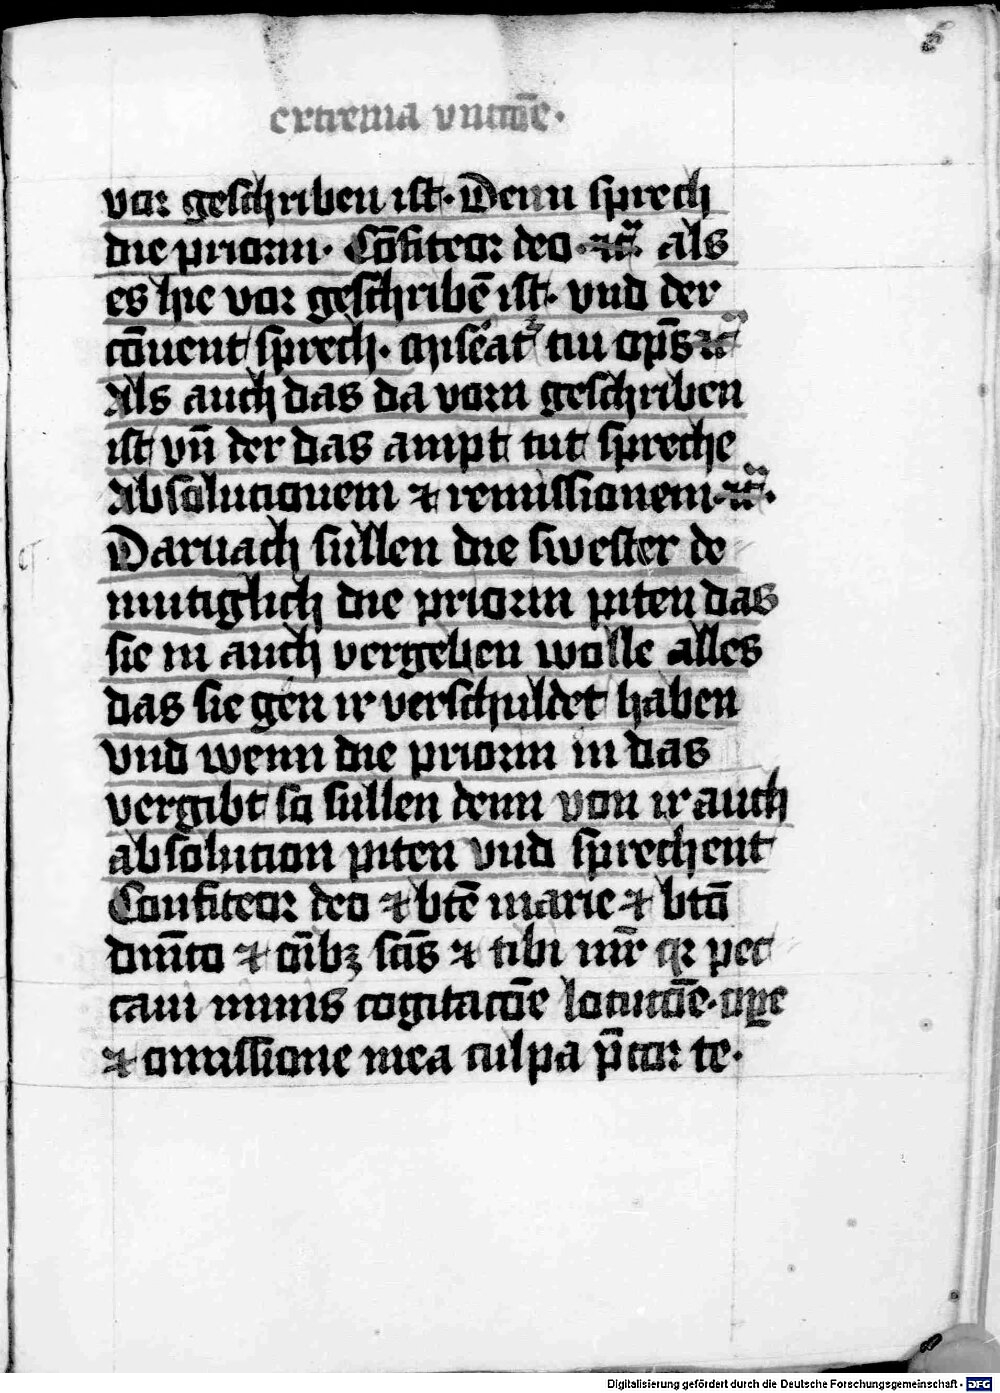 extrema vnctiōe.
vor geschriben ist. Denn sprech
die priorin. Cōfiteor deo. ⁊c̄. als
es hie vor geschribē ist. vnd der
cōuent sprech. Miseat᷑ tui op̄s ⁊c̄
Als auch das da vorn geschriben
ist vn̄ der das ampt tut spreche
Absolucionem ⁊ remissionem. ⁊c̄.
Darnach süllen die swester de
mutiglich die priorin piten das
sie in auch vergeben wolle alles
das sie gen ir verschuldet haben
vnd wenn die priorin in das
vergibt so sullen denn von ir auch
absolucion piten vnd sprechent
Confiteor deo ⁊ btē marie ⁊ btō
dnīco ⁊ oīb⁊ scīs ⁊ tibi mr̄ qꝛ pec
caui nimis cogitacōe locucōe. ope
⁊ omissione mea culpa p̄cor te.
Digitalisierung gefördert durch die Deutsche Forschungsgemeinschaft - DFG